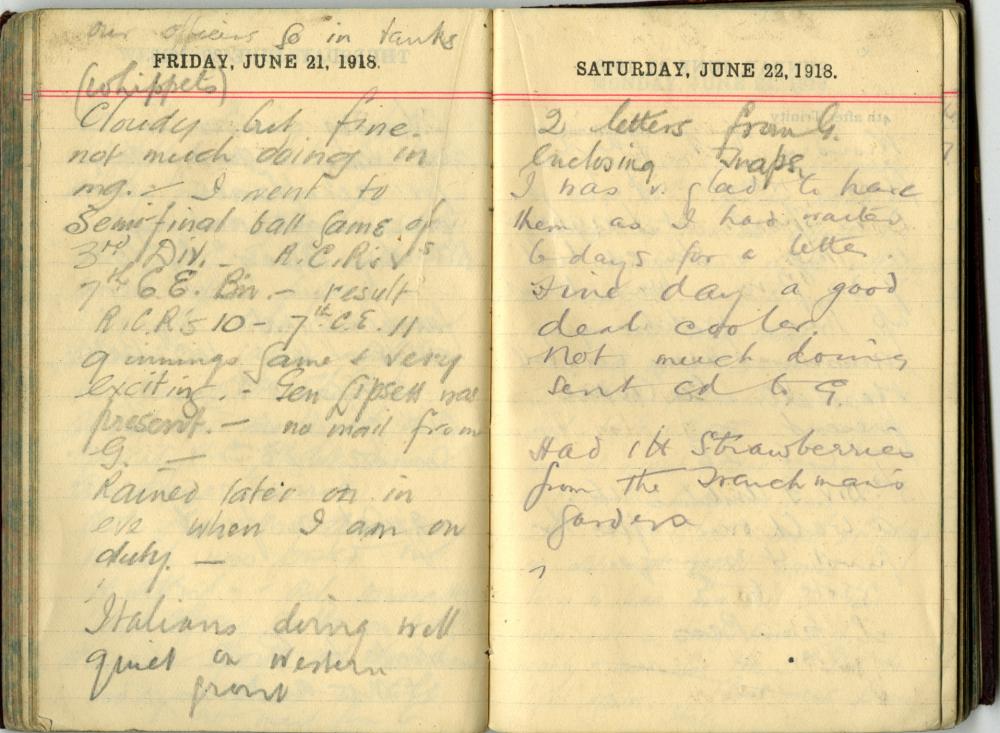 our officers go in tanks
FRIDAY, JUNE 21, 1918.
(whippets)
Cloudy but fine.
not much doing in
mg. - I went to
Semi-final ball game of
3rd Div. - R.C.R's vs
7th C.E. Bn. - result
R.C.R's 10 - 7th C.E. 11
9 innings game & very
exciting. - Gen Lipsett was
present. - no mail from
G. -
Rained later on in
eve when I am on
duty. -
Italians doing well
quiet on Western
front
SATURDAY, JUNE 22, 1918.
2 letters from G.
Enclosing snaps.
I was v. glad to have
them as I had waited
6 days for a letter.
Fine day a good
deal cooler.
Not much doing
sent cd to G.
Had 1st Strawberries
from the Frenchman's
garden